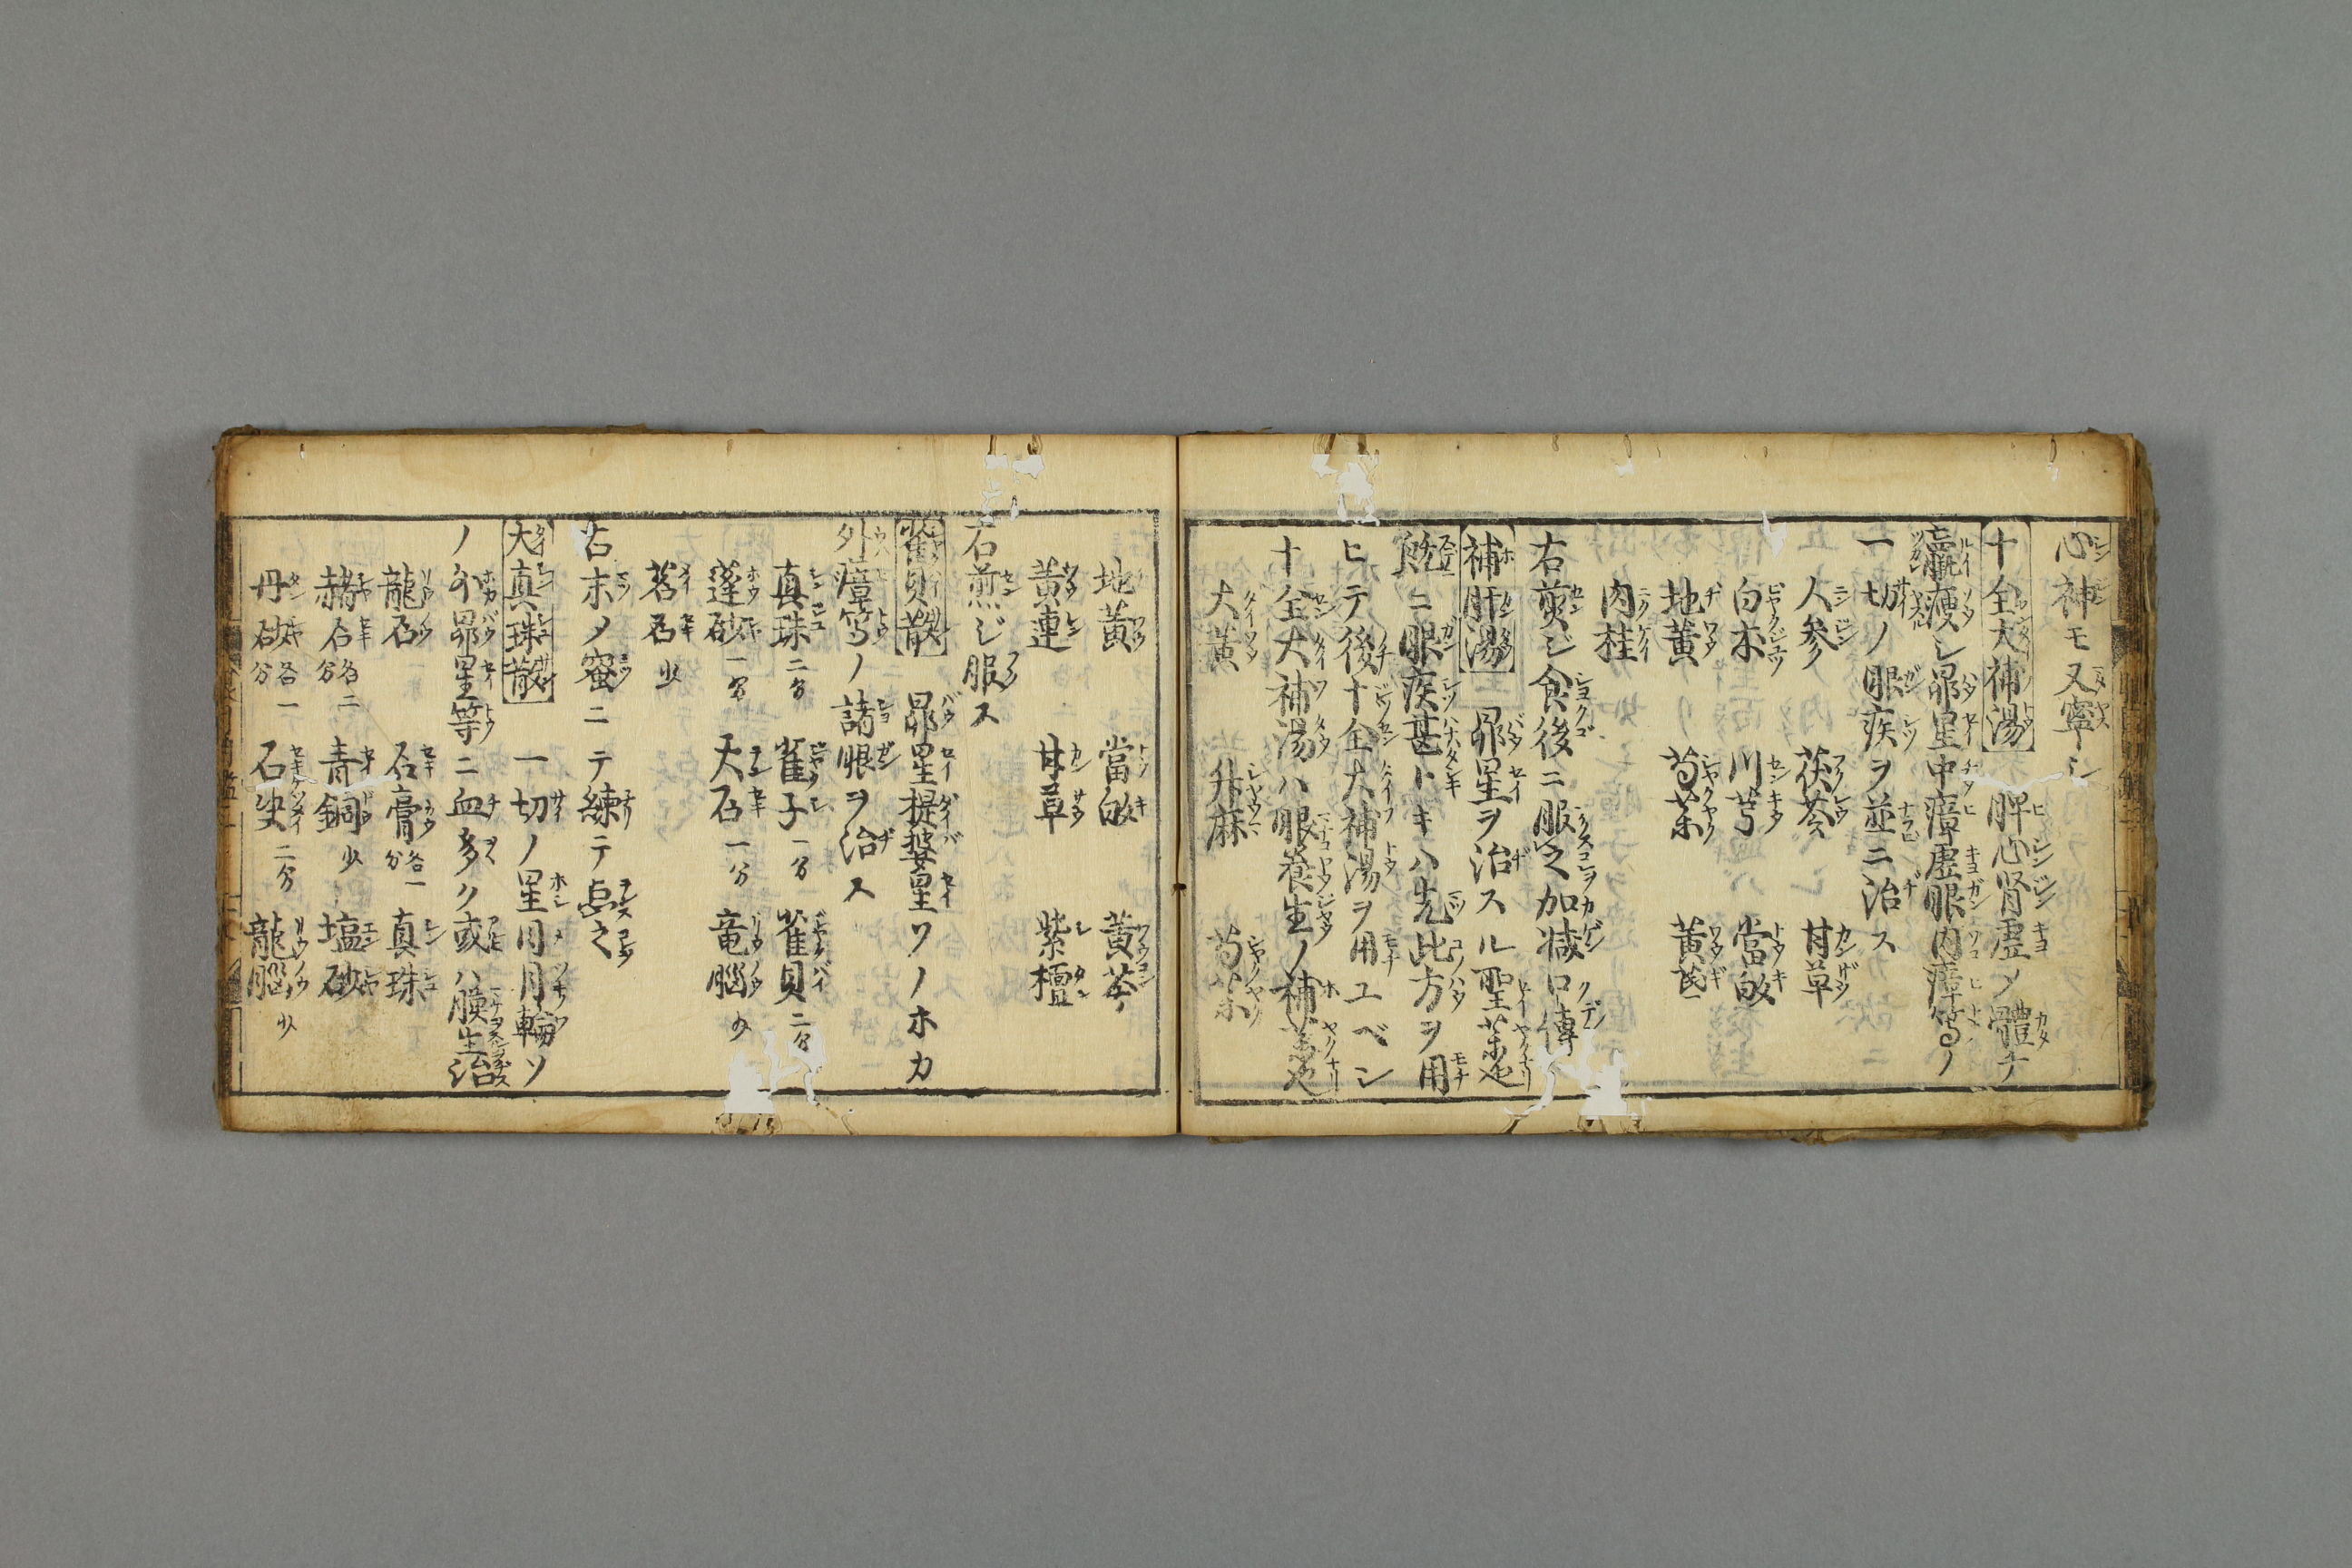 心神モ又寧シ
十全大補湯 脾心腎虚ノ體チ
羸痩シ昴星中瘴虚眼内瘴等ノ
一切ノ眼疾ヲ並ニ治ス
人参 茯苓 甘草
白朮 川芎 當皈
地黄 芍薬 黄茋
肉桂
右煎ジ食後ニ服之加减口傳
補肝湯 昴星ヲ治スル聖薬也
熱ニ眼疾甚トキハ先此方ヲ用
ヒテ後十全大補湯ヲ用ユベシ
十全大補湯ハ眼養生ノ補薬也
大黄 升麻 芍薬
地黄 當皈 黄芩
黄連 甘草 紫檀
右煎ジ服ス
雀貝散 昴星提婆星ソノホカ
外瘴等ノ諸眼ヲ治ス
真珠二分 雀子一分 雀貝二分
蓬砂一分 天石一分 竜腦少
茗石少
右末メ蜜ニテ練テ点之
大真珠散 一切ノ星月月輪ソ
ノ外昴星等ニ血多ク或ハ腴生治
龍石 石膏各一分 真珠
赭石各二分 青銅少 塩砂
丹砂各一分 石決二分 龍腦少